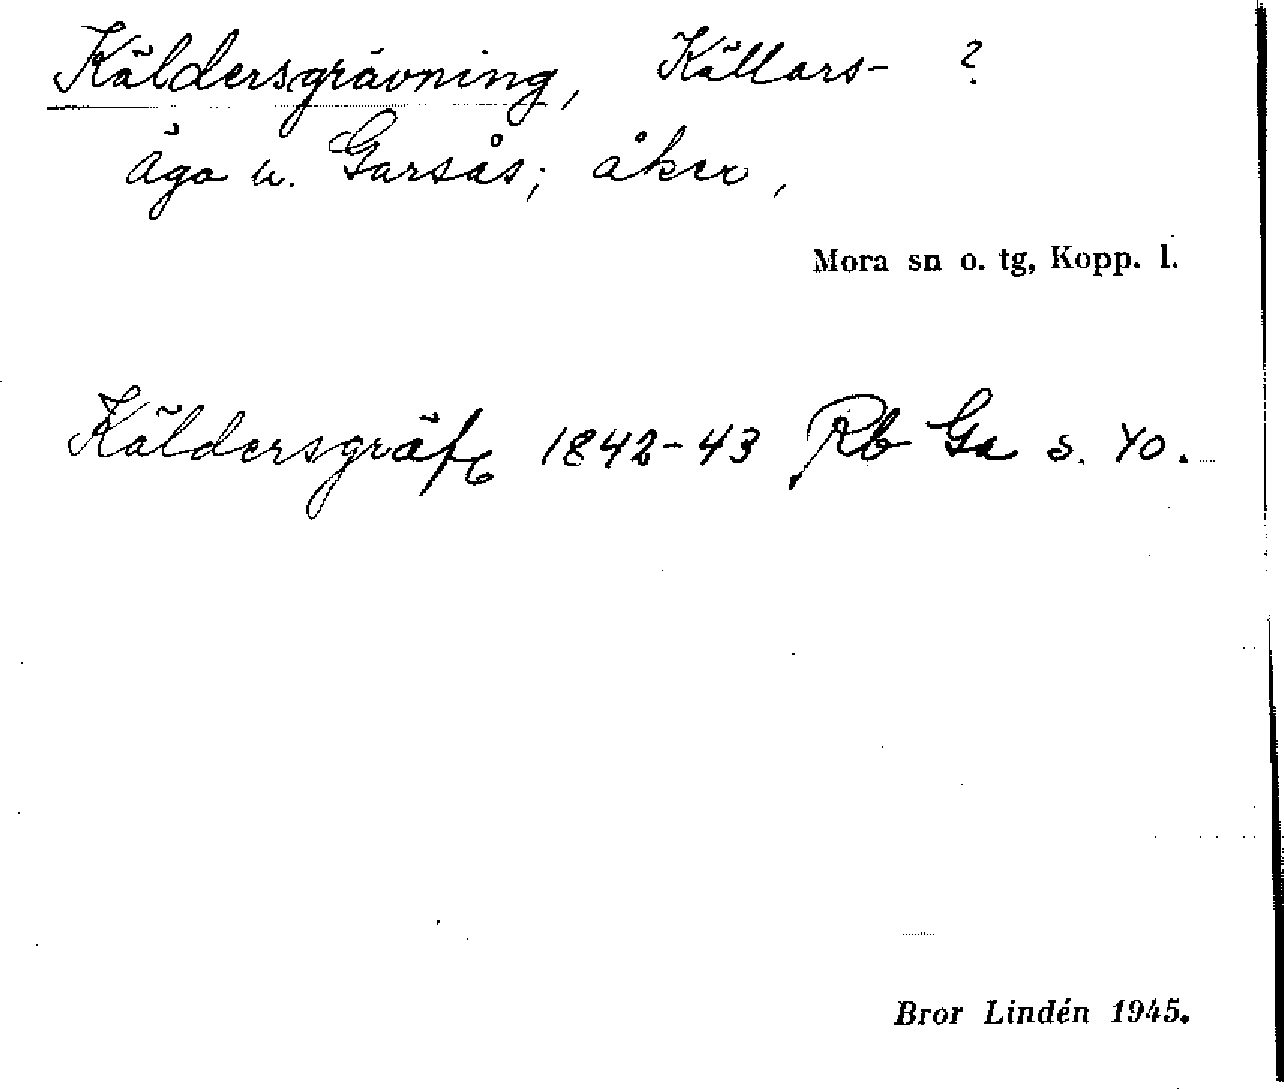 Käldersgrävning, Källars- ?
äga u. Garsås; åker,
Mora sn o. tg, Kopp. l.
Käldersgräfe 1842-43 Rb Ga s. 40.
Bror Lindén 1945.